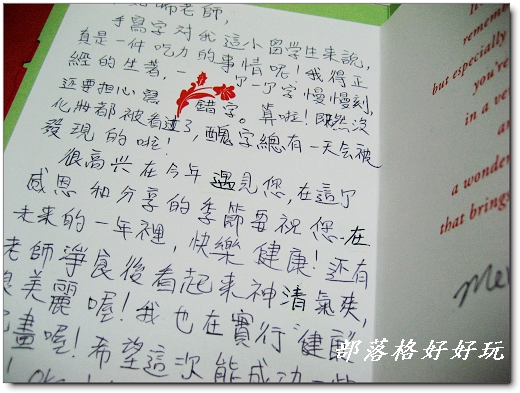 師老師,
手寫字對我這小留學生來說,
真是一件吃力的事情呢!我得正
經的坐著,一 了一了字慢慢刻,
还要担心寫 錯字。算啦!既然沒
化妝都被看过了,醜字總有一天会被
發現的啦!
很高兴在今年遇見您,在這了
感恩和分享的季節要祝您在
未来的一年裡,快樂健康!还有
老師淨食後看起来神清氣爽,
美麗喔!我也在實行"健康
畫喔!希望這次能成功一些
remember
but especially
you're
in a ve
an
a wonder
that brings
Me
部落格好好玩